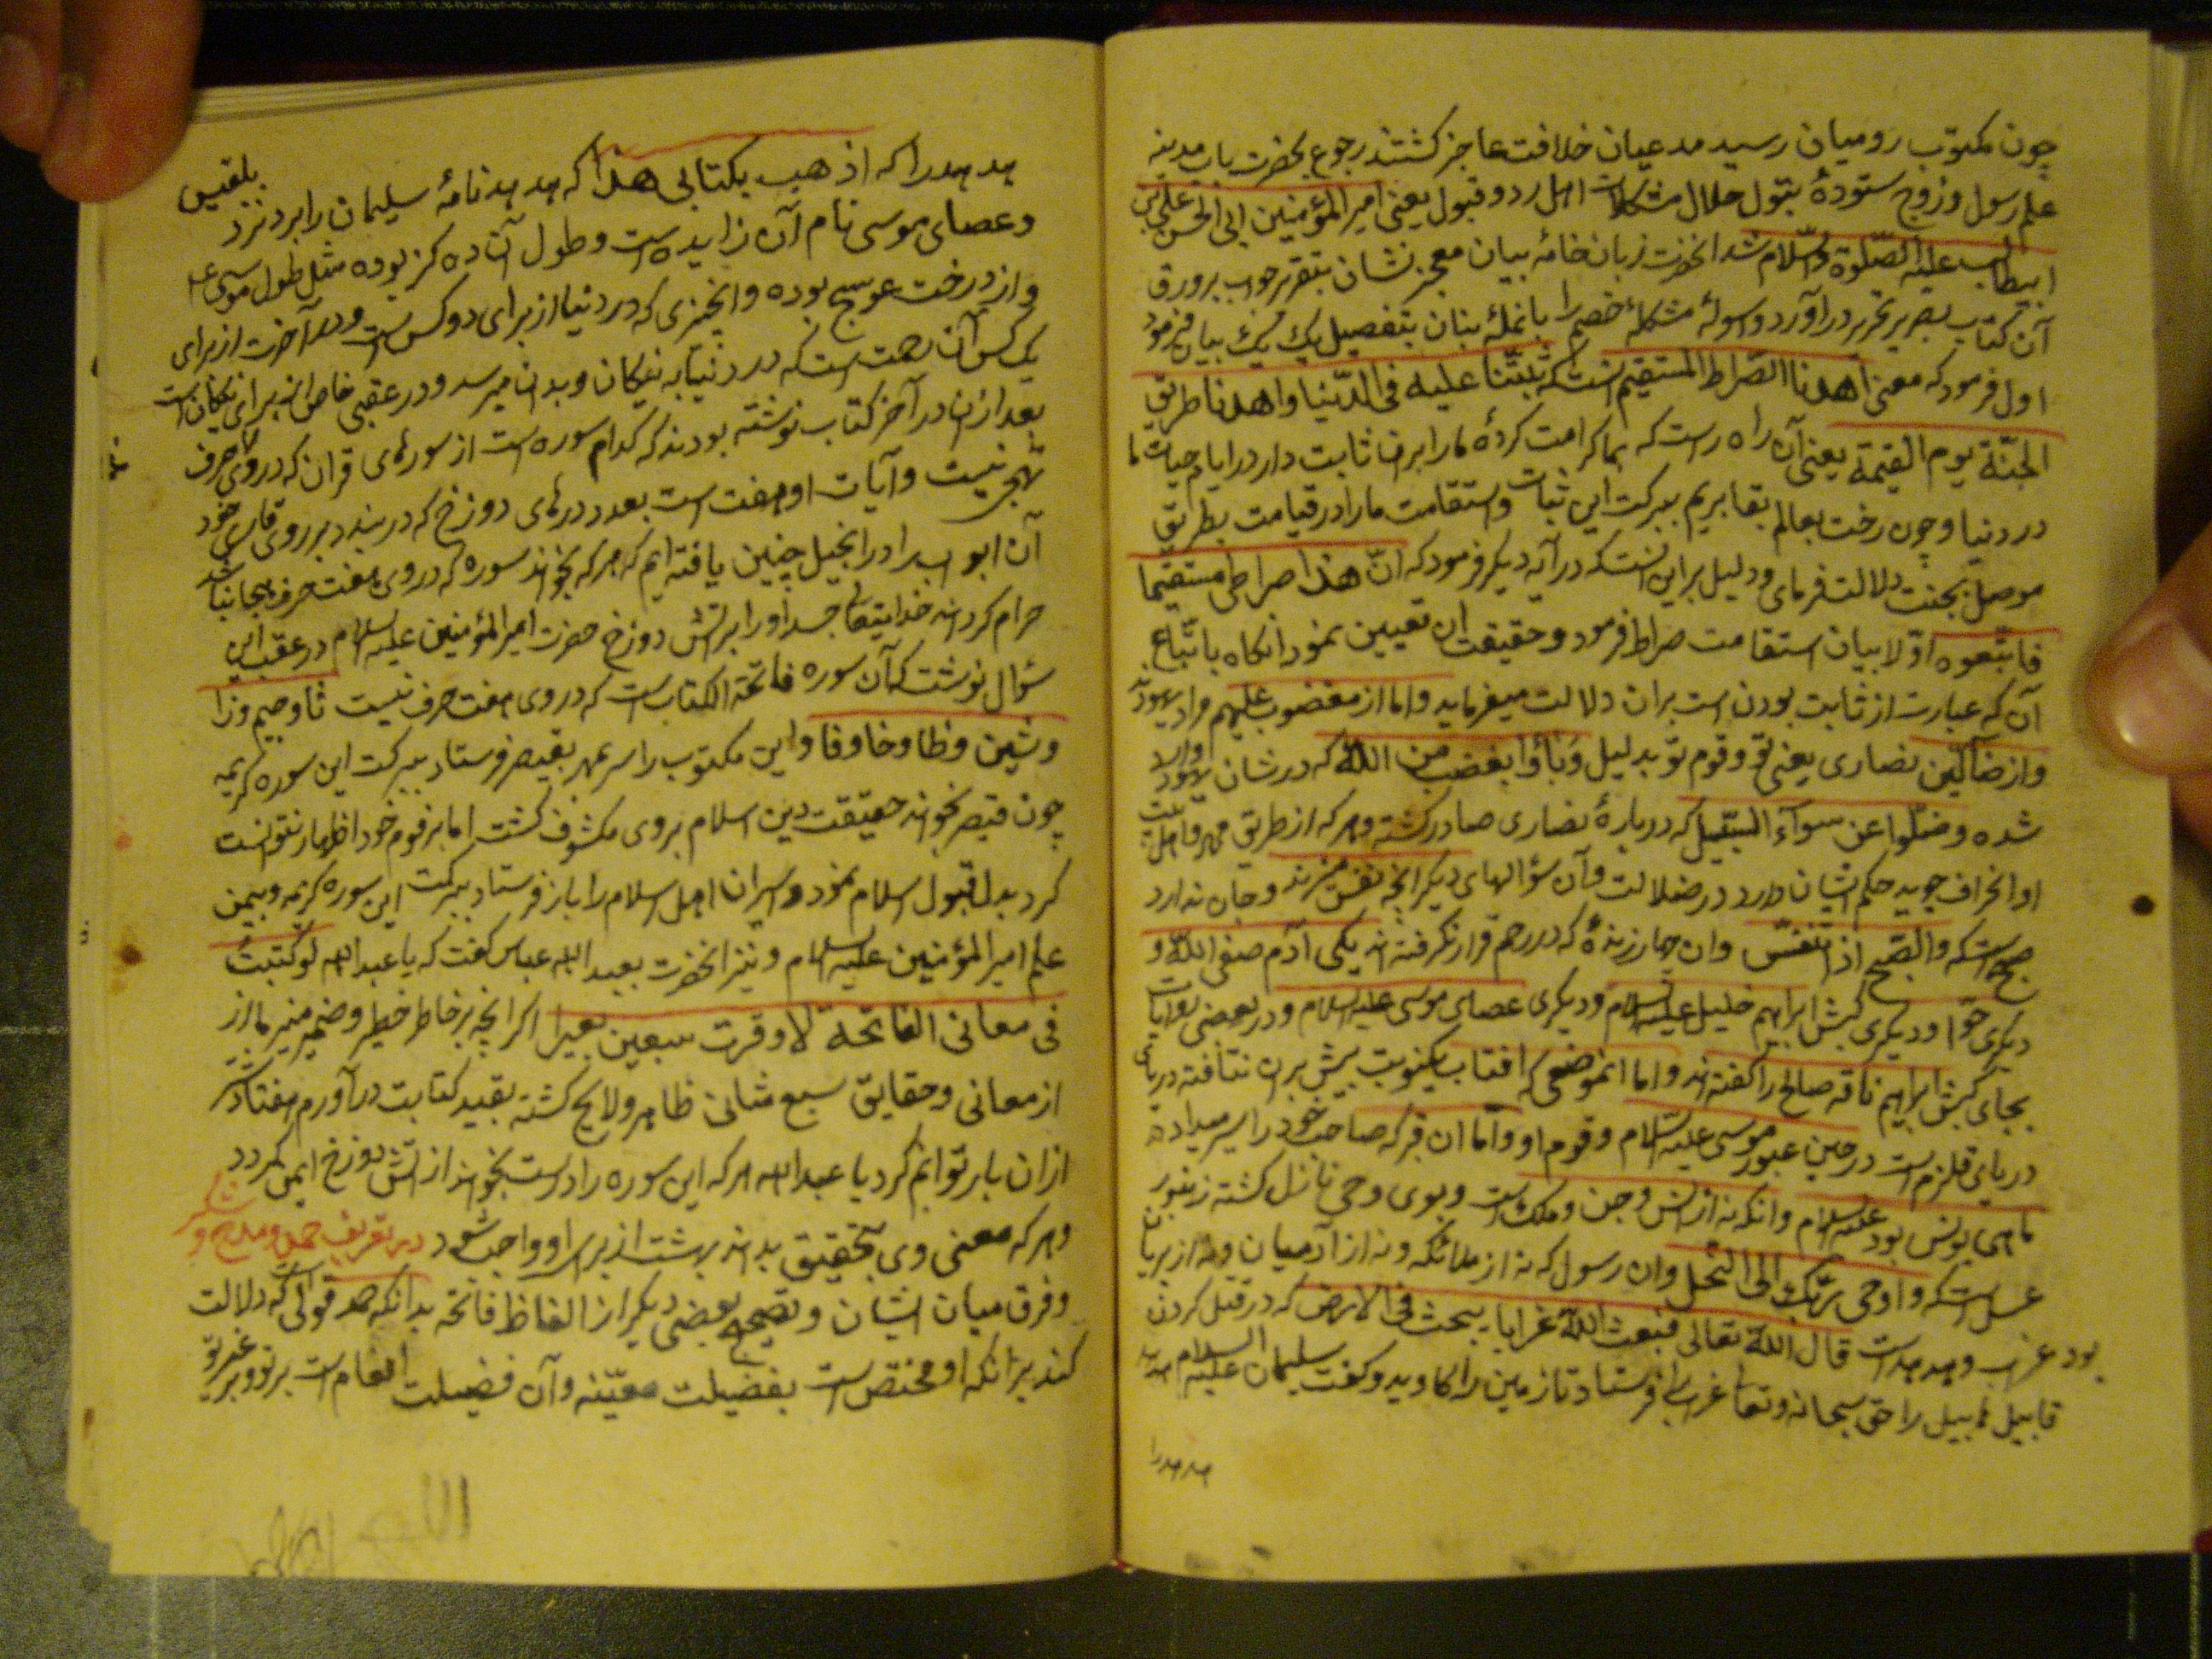 چون مکتوب رومیان رسید مدعیان خلافت عاجز کشتند رجوع بحضرت باب مدینه
علم رسول و زوج ستودهٔ بتول حلال مشکلات اهل رد و قبول یعنی امیر المؤمنین ابی الحسن علی بن
ابیطالب علیه الصّلوة والسّلام شد انحضرت زبان خامهٔ بیان معجز نشان بتقریر جواب بر ورق
آن کتاب بصریر تحریر در آورد و اسولهٔ مشکلهٔ خصم را بانملهٔ بنان بتفصیل یک بیک بیان فرمود
اول فرمود که معنی اهدنا الصّراط المستقیم انست که ثبّتنا علیه فی الدّنیا واهدنا طریق
الجنّة یوم القیمة یعنی آن راه راست که بما کرامت کردهٔ ما را بران ثابت دار در ایام حیات ما
در دنیا و چون رخت بعالم بقا بریم ببرکت این ثبات و استقامت ما را در قیامت بطریق
موصل بجنت دلالت فرمای و دلیل بر این انست که در آیه دیکر فرمود که انّ هذا صراطی مستقیما
فاتّبعوه اوّلا بیان استقامت صراط فرمود و حقیقت ان تعیین نمود انکاه باتّباع
آن که عبارت از ثابت بودن است بران دلالت میفرماید و اما از مغضوب علیهم مراد یهودند
و از ضآلّین نصاری یعنی تو و قوم تو بدلیل وَبَاؤا بغضب من اللّه که در شان یهود وارد
شده و ضلّوا عن سوآء السّبیل که در بارهٔ نصاری صادر کشته و هرکه از طریق
او انحراف جوید حکم ایشان دارد در ضلالت و آن سؤالهای دیکر انچه نفس میزند و جان ندارد
صبح است که والصّبح اذا تنفّس وان چهار زندهٔ که در رحم قرار نکرفته اند یکی آدم صفی اللّه و
دیکری حوّا و دیکری کبش ابراهیم خلیل علیه السلام و دیکری عصای موسی علیه السلام و در بعضی روایات
بجای کبش ابراهیم ناقه صالح را کفته اند و اما انموضعی که افتاب یکنوبت بیش بران نتافته دریای
دریای قلزم است در حین عبور موسی علیه السّلام و قوم او و امّا ان قبر که صاحب خود را سیر میداد
ماهی یونس بود علیه السلام وانکه نه از انس و جن و ملک است و بوی وحی نازل کشته زنبور
عسل است که و اوحی ربّک الی النّحل وان رسول که نه از ملائکه و نه از آدمیان و نه از پریان
بود غراب و هدهد است قال اللّه تعالی فبعث اللّه غرابا یبحث فی الارض که در قتل کردن
قابیل هابیل را حق سبحانه و تعالی غرابی فرستاد تا زمین را کاوید و کفت سلیمان علیه السلام
هدهد را
هدهد را که اذهب بکتابی هذا که هدهد نامهٔ سلیمان را برد نزد بلقیس
و عصای موسی نام آن زایده است و طول آن ده کز بوده مثل طول موسی ع
و از درخت عوسج بوده و انچیزی که در دنیا از برای دو کس است و در آخرت از برای
یک کس آن رحمت است که در دنیا به نیکان و بدان میرسد و در عقبی خاص از برای نیکان است
بعد از ان در آخر کتاب نوشته بودند که کدام سوره است از سورهای قران که در وی حرف
تهجی نیست و آیات او هفت است بعدد درهای دوزخ که در بندد بر روی قاری خود
آن ابواب را در انجیل چنین یافته ایم که هرکه بخواند سوره که در وی هفت حرف هجا نباشد
حرام کرداند خدایتعالی جسد او را بر آتش دوزخ حضرت امیر المؤمنین علیه السلام در عقب این
سؤال نوشت که آن سوره فاتحة الکتاب است که در وی هفت حرف نیست ثا و جیم و زا
و شین و ظا و خا و فا و این مکتوب را سر بمهر بقیصر فرستاد ببرکت این سوره کریمه
چون قیصر بخواند حقیقت دین اسلام بر وی مکشوف کشت اما بر قوم خود اظهار نتوانست
کرد بدل قبول اسلام نمود و اسیران اهل اسلام را باز فرستاد ببرکت این سوره کریمه و بیمن
علم امیر المؤمنین علیه السلام و نیز انحضرت بعبد اللّه عباس کفت که یا عبد اللّه لو کتبتُ
فی معانی الفاتحة لاوقرت سبعین بعیرا اکر انچه بر خاطر خطیر و ضمیر منیر ما از
از معانی و حقایق سبع مثانی ظاهر و لایح کشته بقید کتابت در آورم هفتاد شتر
ازان بار توانم کرد یا عبد اللّه هر که این سوره را درست بخواند از آتش دوزخ ایمن کردد
و هر که معنی وی بتحقیق بداند بهشت از برای او واجب شود در تعریف حمد و مدح و شکر
و فرق میان ایشان و تصحیح بعضی دیکر از الفاظ فاتحه بدانکه حمد قولی است که دلالت
کند بر انکه او مختص است بفضیلت معیّنه و آن فضیلت انعام است بر تو و بر غیر تو